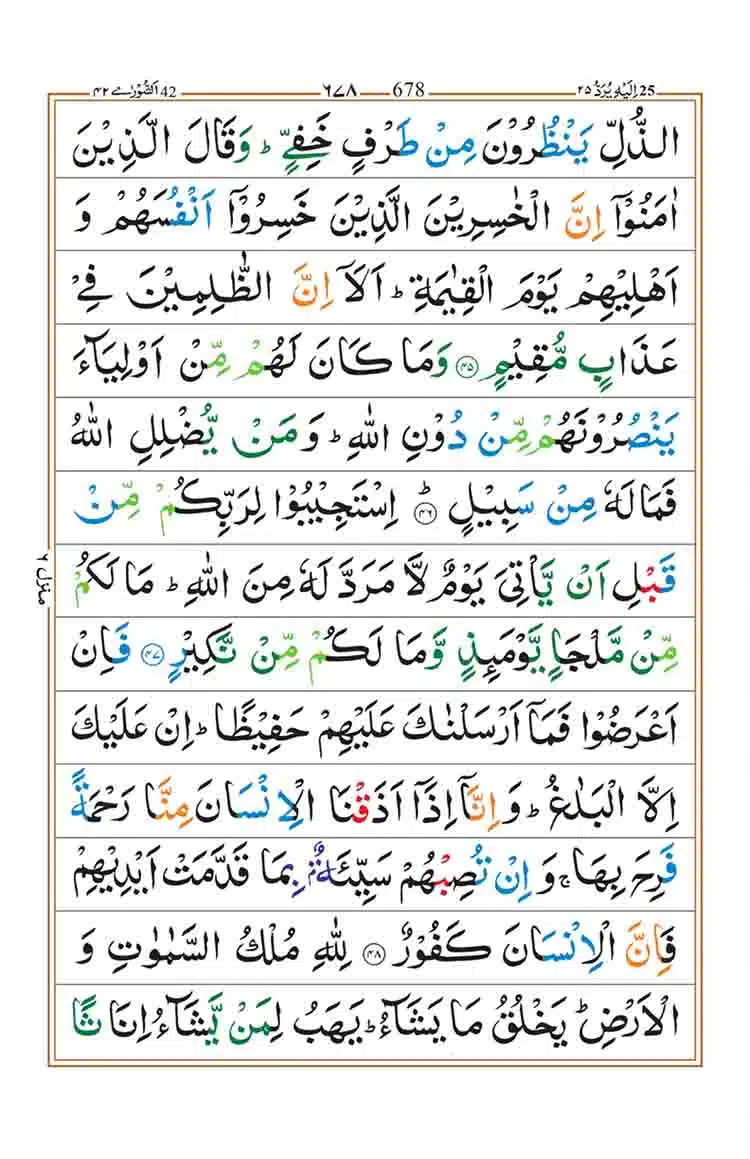 اَلشُّوْرٰى ٤٢ 42 ٦٧٨ 678 اِلَيْهِ يُرَدُّ ٢٥ 25
الذُّلِّ يَنْظُرُوْنَ مِنْ طَرْفٍ خَفِيٍّ ؕ وَقَالَ الَّذِيْنَ
اٰمَنُوْۤا اِنَّ الْخٰسِرِيْنَ الَّذِيْنَ خَسِرُوْۤا اَنْفُسَهُمْ وَ
اَهْلِيْهِمْ يَوْمَ الْقِيٰمَةِ ؕ اَلَاۤ اِنَّ الظّٰلِمِيْنَ فِيْ
عَذَابٍ مُّقِيْمٍ ﴿٤٥﴾ وَمَا كَانَ لَهُمْ مِّنْ اَوْلِيَآءَ
يَنْصُرُوْنَهُمْ مِّنْ دُوْنِ اللّٰهِ ؕ وَمَنْ يُّضْلِلِ اللّٰهُ
فَمَا لَهٗ مِنْ سَبِيْلٍ ﴿٤٦﴾ؕ اِسْتَجِيْبُوْا لِرَبِّكُمْ مِّنْ
قَبْلِ اَنْ يَّاْتِيَ يَوْمٌ لَّا مَرَدَّ لَهٗ مِنَ اللّٰهِ ؕ مَا لَكُمْ
مِّنْ مَّلْجَاٍ يَّوْمَئِذٍ وَّمَا لَكُمْ مِّنْ نَّكِيْرٍ ﴿٤٧﴾ فَاِنْ
اَعْرَضُوْا فَمَاۤ اَرْسَلْنٰكَ عَلَيْهِمْ حَفِيْظًا ؕ اِنْ عَلَيْكَ
اِلَّا الْبَلٰغُ ؕ وَ اِنَّاۤ اِذَاۤ اَذَقْنَا الْاِنْسَانَ مِنَّا رَحْمَةً
فَرِحَ بِهَا ۚ وَ اِنْ تُصِبْهُمْ سَيِّئَةٌۢ بِمَا قَدَّمَتْ اَيْدِيْهِمْ
فَاِنَّ الْاِنْسَانَ كَفُوْرٌ ﴿٤٨﴾ لِلّٰهِ مُلْكُ السَّمٰوٰتِ وَ
الْاَرْضِ ؕ يَخْلُقُ مَا يَشَآءُ ؕ يَهَبُ لِمَنْ يَّشَآءُ اِنَاثًا
منزل ٦